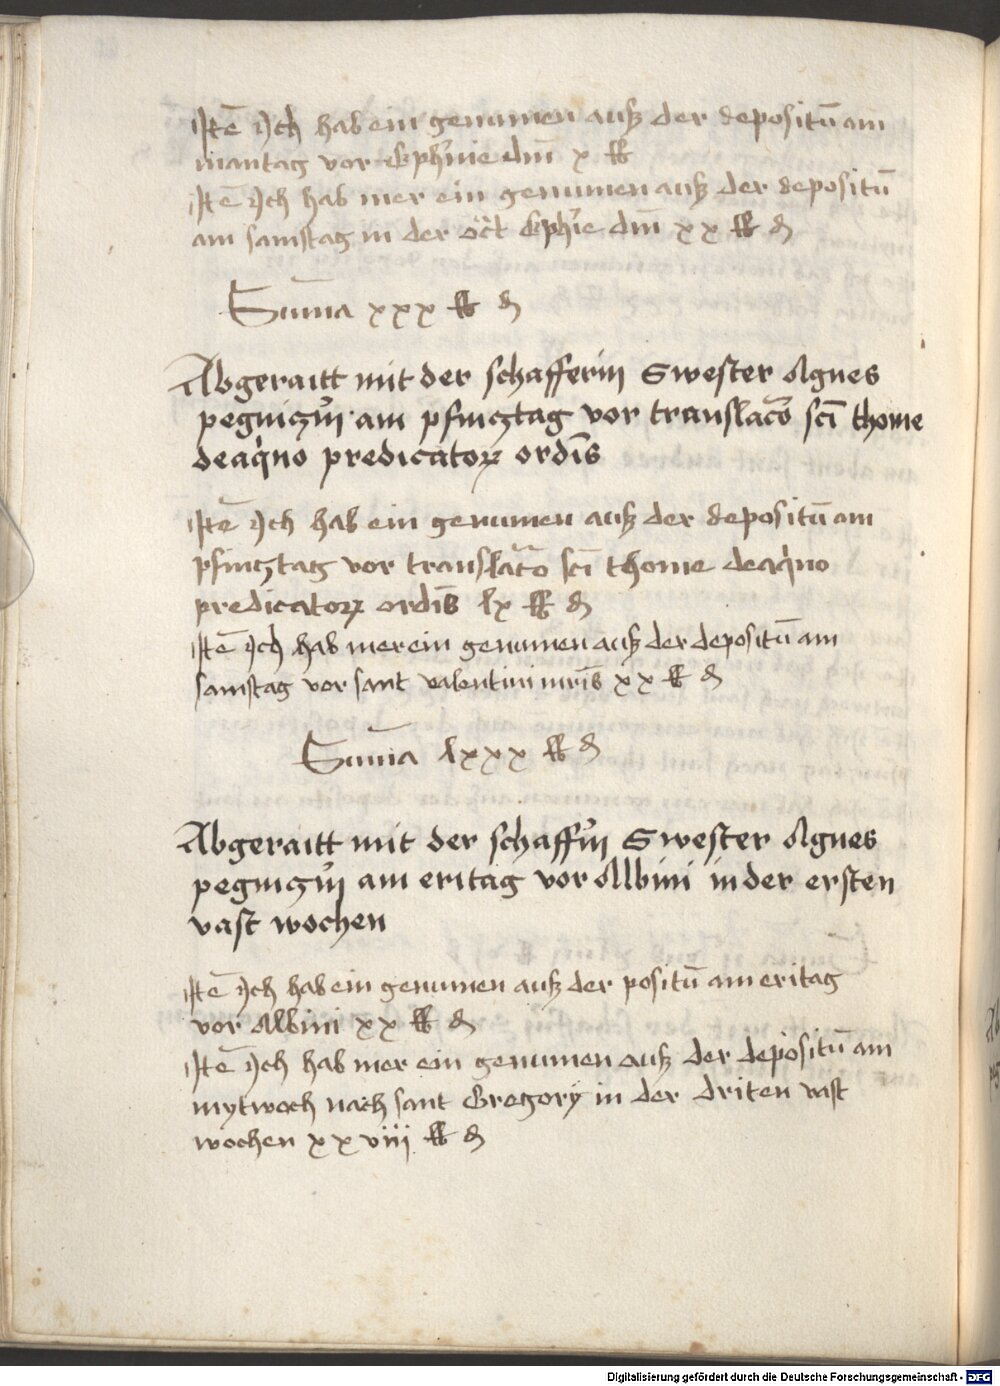 Itē Ich hab ein genumen auß der depositū am
mantag vor Ephīnie dm̄ x ℔
Itē Ich hab mer ein genumen auß der depositū
am samstag in der oct̄ Ephīe dm̄ xx ℔ ₰
Sum̄a xxx ℔ ₰
Abgeraitt mit der schafferin Swester Agnes
pegniczīn am pfincztag vor translacō scī thome
deaqno predicatoꝝ ordīs
Itē Ich hab ein genumen auß der depositū am
pfincztag vor translacō scī thome deaqno
predicatoꝝ ordīs lx ℔ ₰
Itē Ich hab mer ein genumen auß der depositū am
samstag vor sant valentini mrīs xx ℔ ₰
Sum̄a lxxx ℔ ₰
Abgeraitt mit der schaffīn Swester Agnes
pegniczīn am eritag vor Albini in der ersten
vast wochen
Itē Ich hab ein genumen auß der positū am eritag
vor Albini xx ℔ ₰
Itē Ich hab mer ein genumen auß der depositū am
mytwoch nach sant Gregory in der driten vast
wochen xxviii ℔ ₰
Digitalisierung gefördert durch die Deutsche Forschungsgemeinschaft - DFG